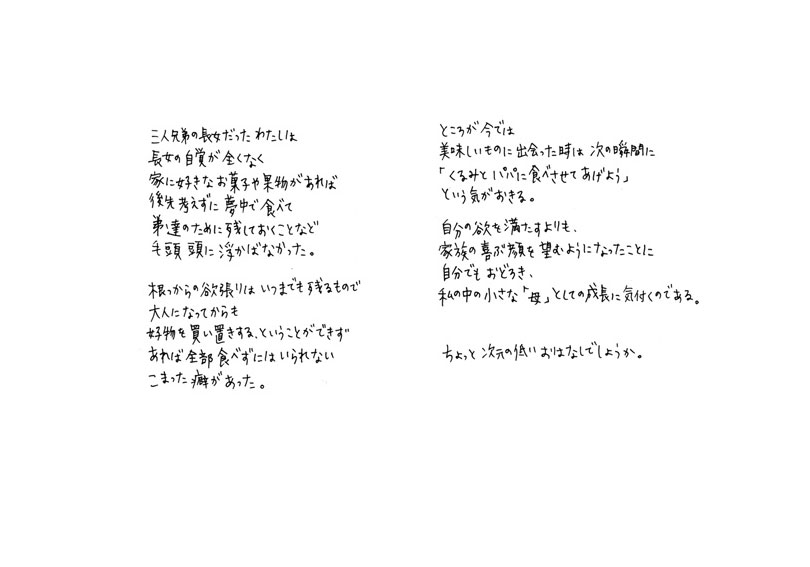 三人兄弟の長女だった わたしは
長女の自覚が全くなく
家に好きなお菓子や果物があれば
後先考えずに夢中で食べて
弟達のために残しておくことなど
毛頭頭に浮かばなかった。
根っからの欲張りはいつまでも残るもので
大人になってからも
好物を買い置きする、ということができず
あれば全部食べずにはいられない
こまった癖があった。
ところが今では
美味しいものに出会った時は次の瞬間に
「くるみとパパに食べさせてあげよう」
という気がおきる。
自分の欲を満たすよりも、
家族の喜ぶ顔を望むようになったことに
自分でもおどろき、
私の中の小さな「母」としての成長に気付くのである。
ちょっと次元の低いおはなしでしょうか。